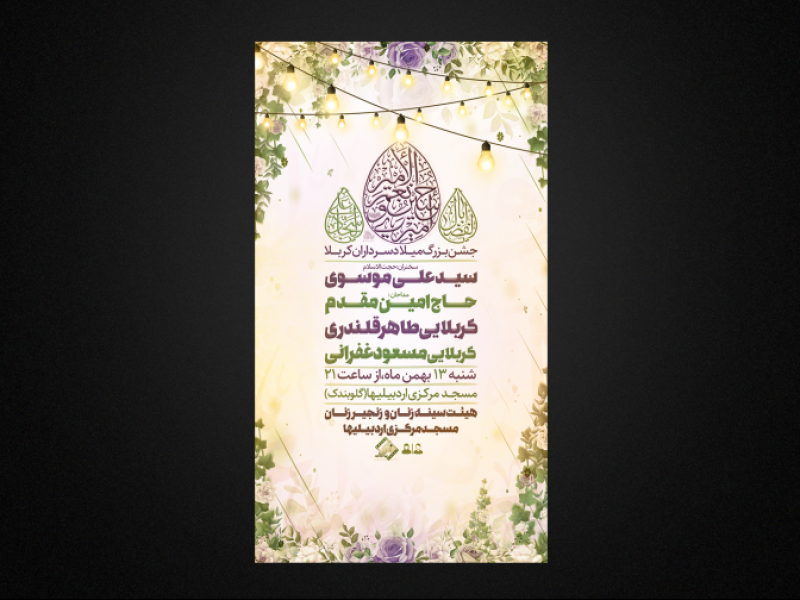 امیری حسین و نعم الأمیر
جشن بزرگ میلاد سرداران کربلا
سخنران: حجت الاسلام
سید علی موسوی
مداحان:
حاج امین مقدم
کربلایی طاهر قلندری
کربلایی مسعود غفرانی
شنبه ۱۳ بهمن ماه، از ساعت ۲۱
مسجد مرکزی اردبیلیها (گلوبندک)
هیئت سینه زنان و زنجیر زنان
مسجد مرکزی اردبیلیها